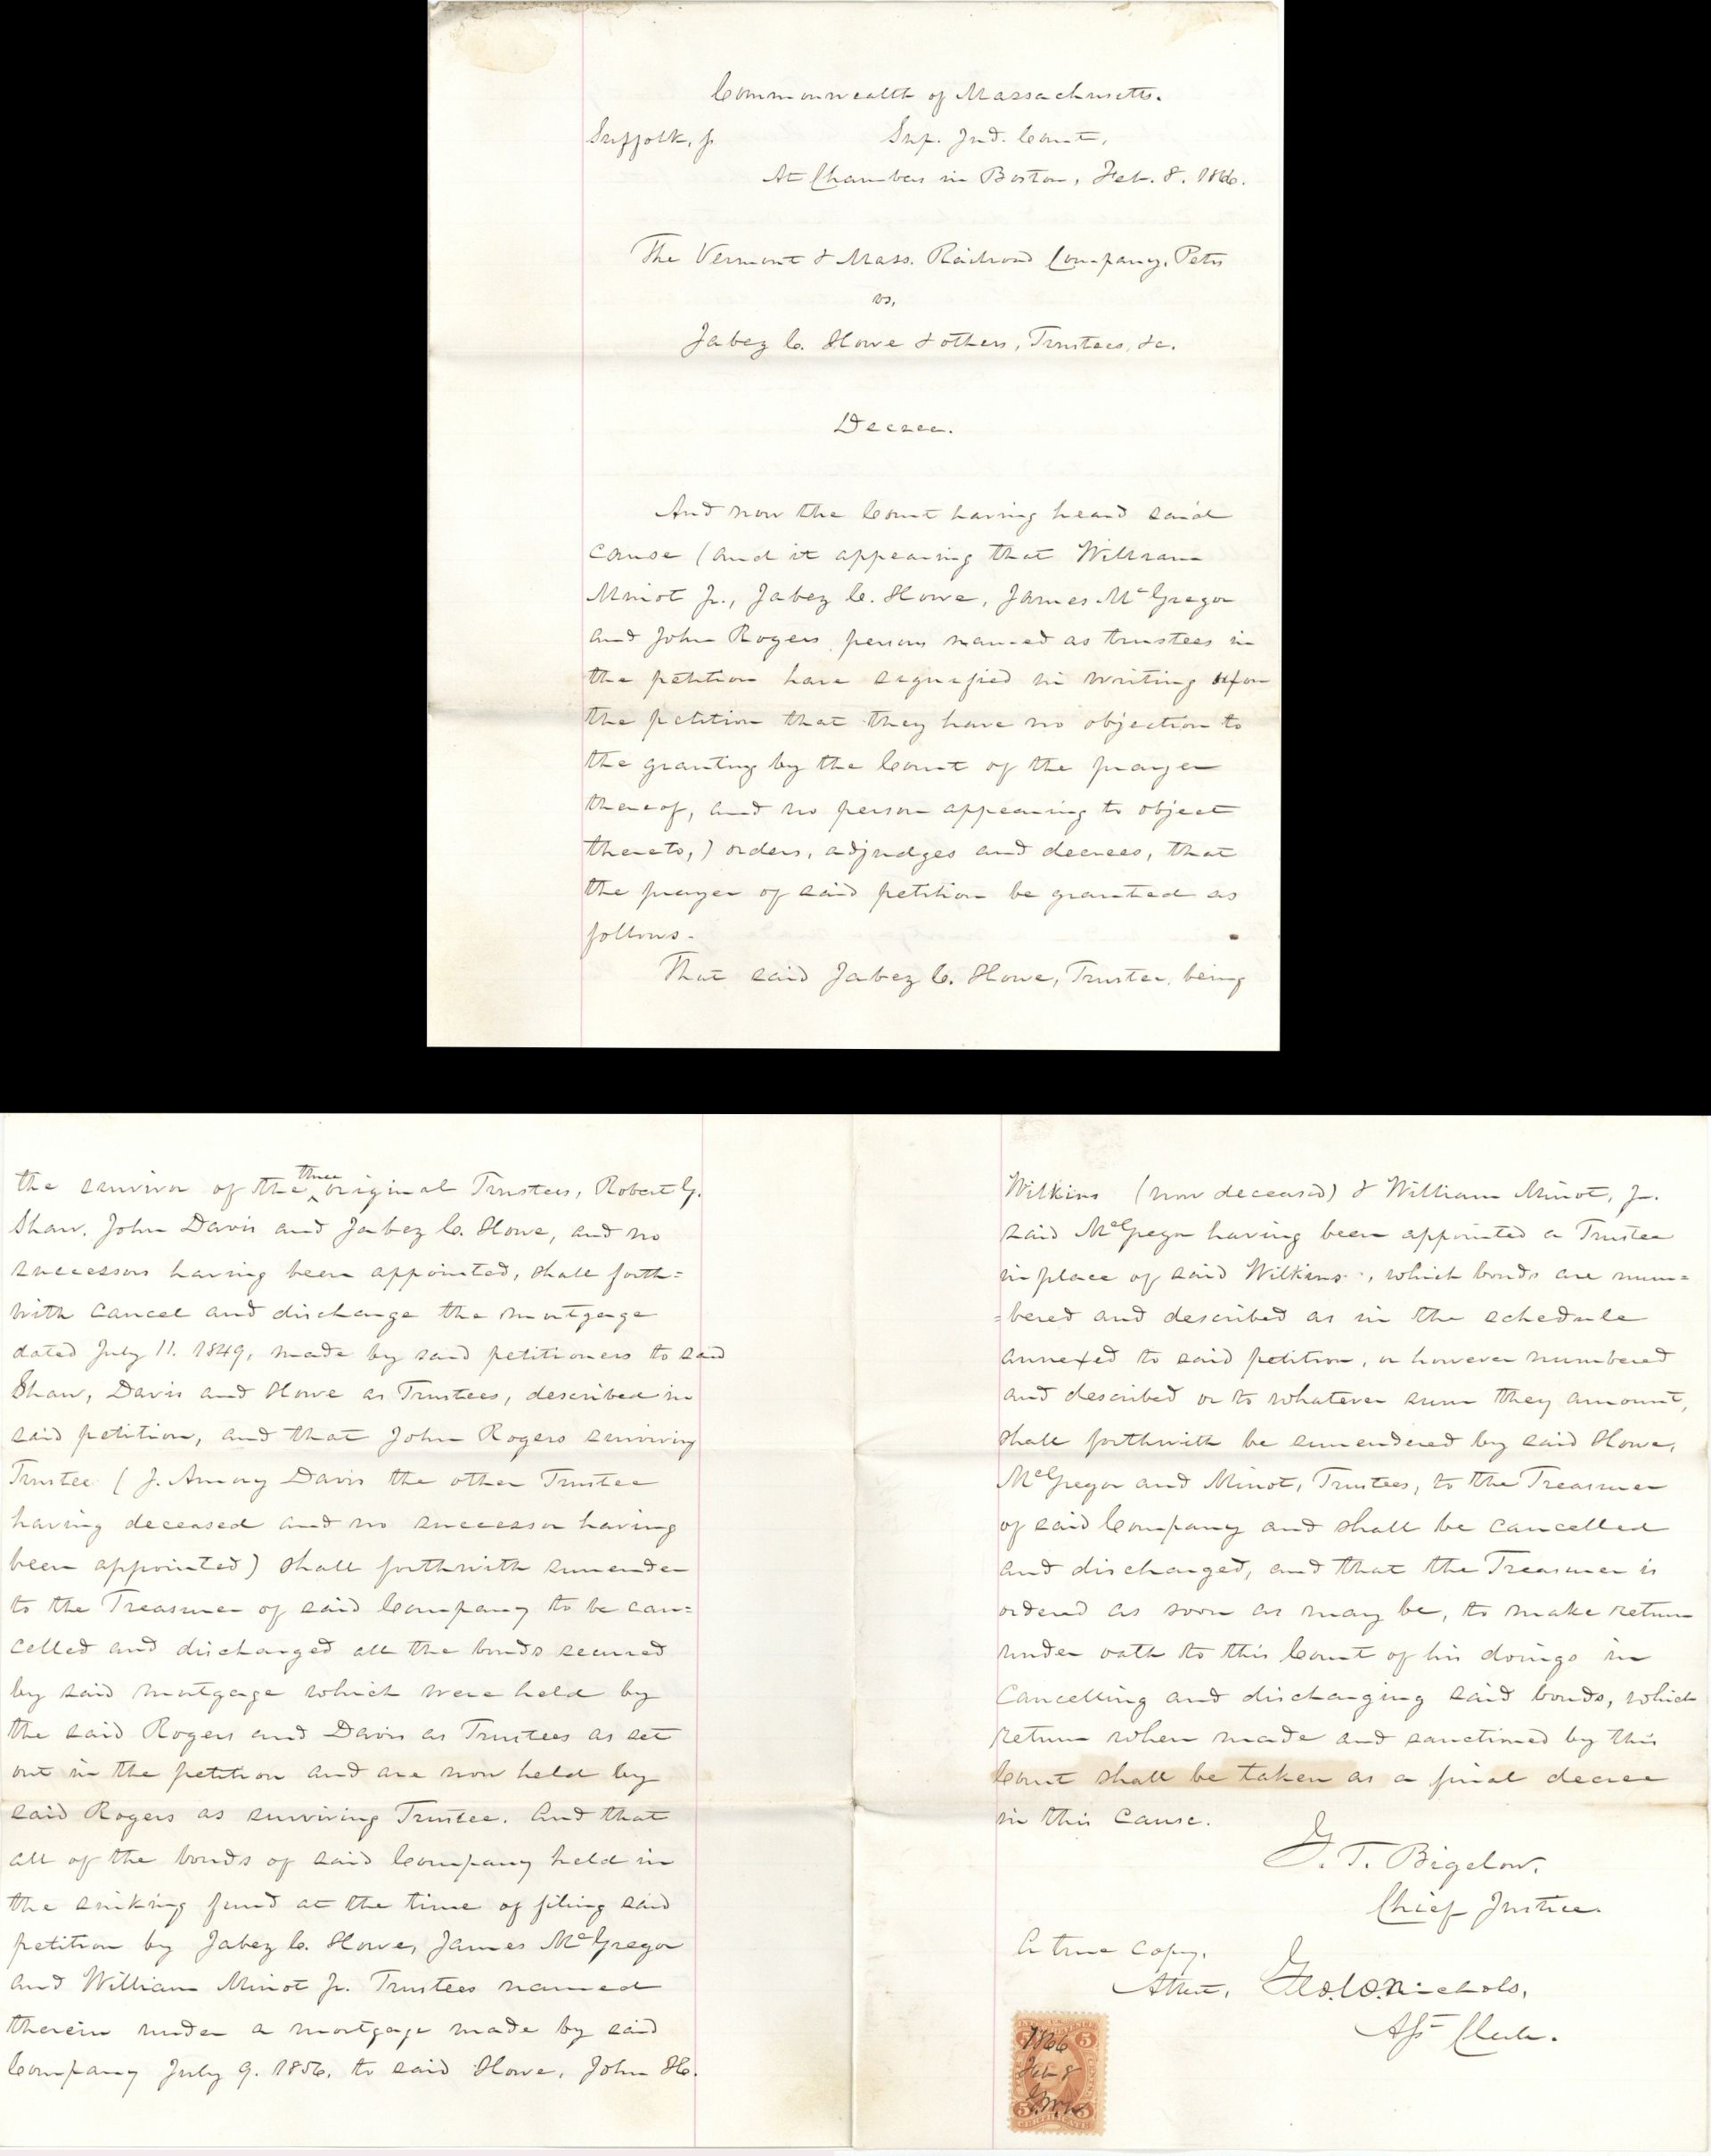 Commonwealth of Massachusetts.
Suffolk, ss. Sup. Jud. Court,
At Chambers in Boston, Feb. 8. 1866.
The Vermont & Mass. Railroad Company, Petrs
vs.
Jabez C. Howe & others, Trustees, &c.
Decree.
And now the Court having heard said
cause (and it appearing that William
Minot Jr., Jabez C. Howe, James McGregor
and John Rogers, persons named as trustees in
the petition have signified in writing upon
the petition that they have no objection to
the granting by the Court of the prayer
thereof, and no person appearing to object
thereto,) orders, adjudges and decrees, that
the prayer of said petition be granted as
follows.
That said Jabez C. Howe, Trustee, being
the survivor of the three original Trustees, Robert G.
Shaw, John Davis and Jabez C. Howe, and no
successors having been appointed, shall forth=
with cancel and discharge the mortgage
dated July 11. 1849, made by said petitioners to said
Shaw, Davis and Howe as Trustees, described in
said petition, and that John Rogers surviving
Trustee (J. Amory Davis the other Trustee
having deceased and no successor having
been appointed) shall forthwith surrender
to the Treasurer of said Company to be can=
celled and discharged all the bonds secured
by said mortgage which were held by
the said Rogers and Davis as Trustees as set
out in the petition and are now held by
said Rogers as surviving Trustee. And that
all of the bonds of said Company held in
the sinking fund at the time of filing said
petition by Jabez C. Howe, James McGregor
and William Minot Jr. Trustees named
therein under a mortgage made by said
Company July 9. 1856, to said Howe, John H.
Wilkins (now deceased) & William Minot, Jr.
said McGregor having been appointed a Trustee
in place of said Wilkins, which bonds are num=
=bered and described as in the schedule
annexed to said petition, or however numbered
and described or to whatever sum they amount,
shall forthwith be surrendered by said Howe,
McGregor and Minot, Trustees, to the Treasurer
of said Company and shall be cancelled
and discharged, and that the Treasurer is
ordered as soon as may be, to make return
under oath to this Court of his doings in
cancelling and discharging said bonds, which
return when made and sanctioned by this
Court shall be taken as a final decree
in this cause.
G. T. Bigelow.
Chief Justice.
A true copy.
Attest, Nichols,
Asst Clerk.
5
1866
Feb 8
5 5
CERTIFICATE